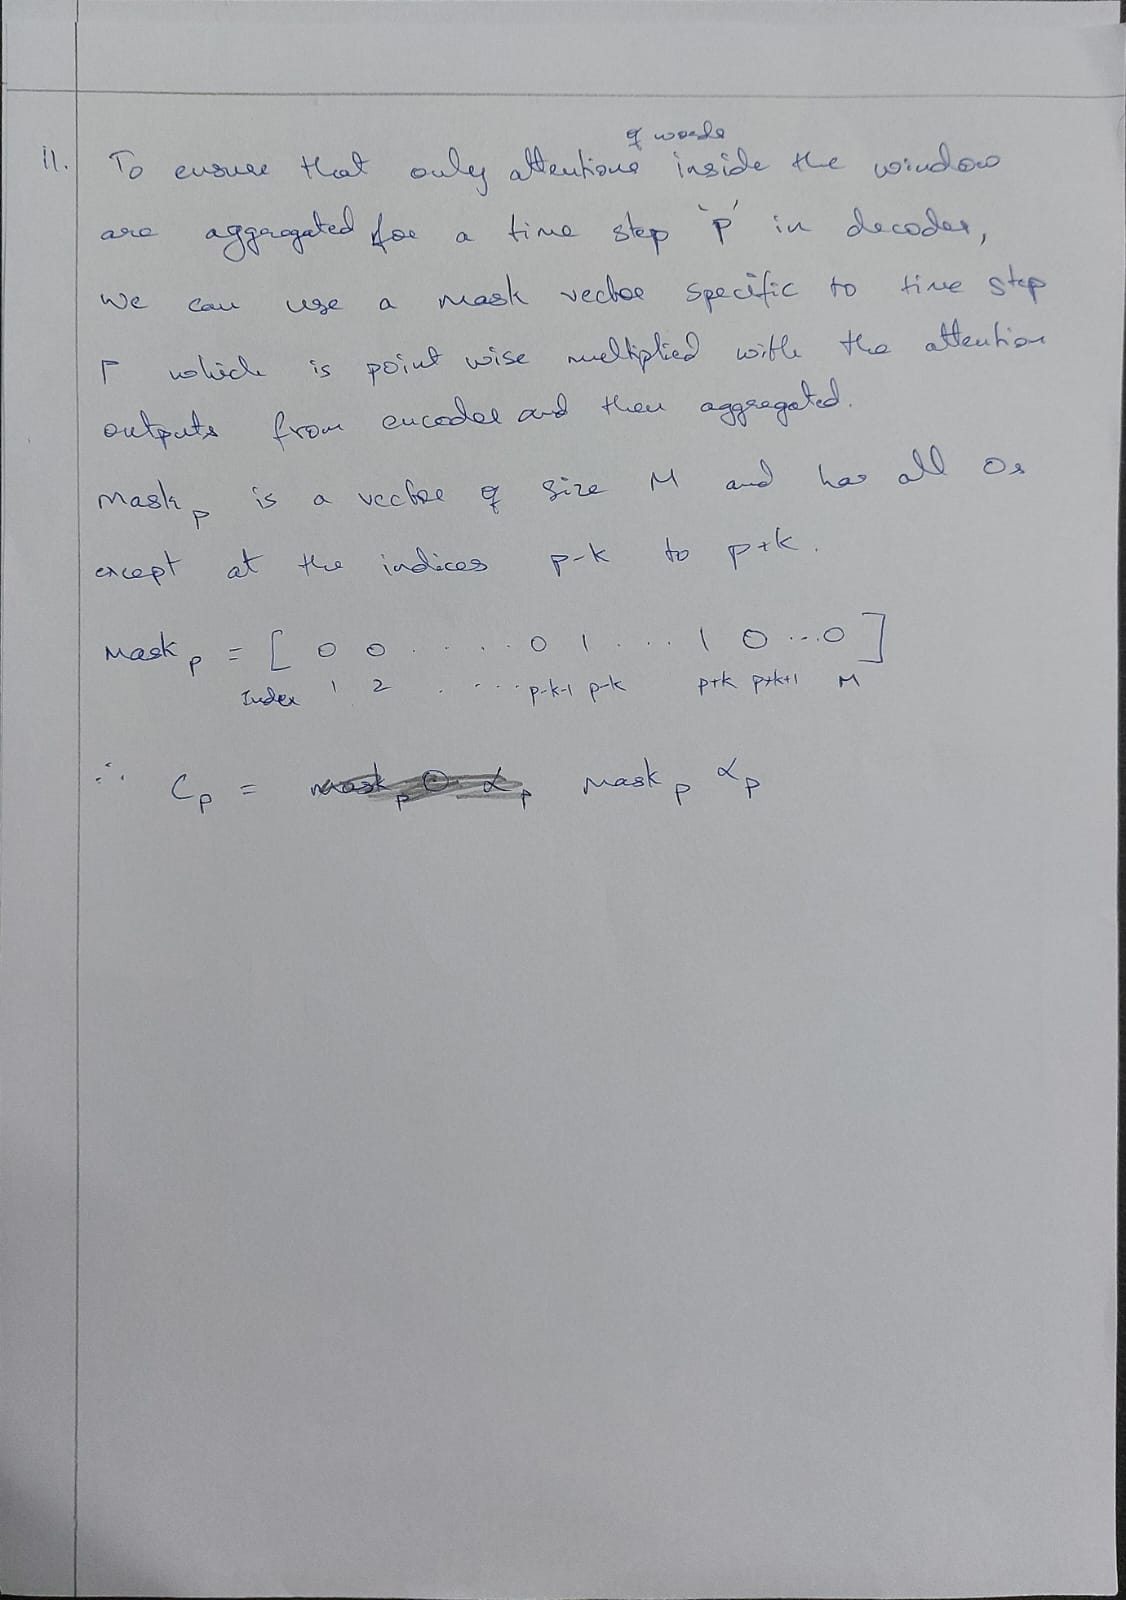 of words
ii. To ensure that only attentions inside the window
are aggregated for a time step 'p' in decoder,
we can use a mask vector specific to time step
P which is point wise multiplied with the attention
outputs from encoder and then aggregated.
Mask p is a vector of size M and has all 0s
except at the indices p-k to p+k.
Mask p = [ 0 0 ..... 0 1 ... 1 0 ...0 ]
Index 1 2 . ....p-k-1 p-k p+k p+k+1 M
∴ Cp = mask p ⊙ αp Mask p αp